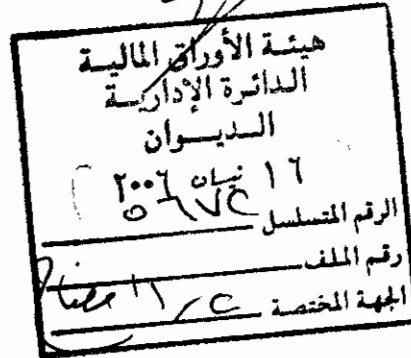 هيئة الأوراق المالية
الدائرة الإدارية
الديوان
١٦ نيسان ٢٠٠٦
الرقم المتسلسل
رقم الملف
الجهة المختصة